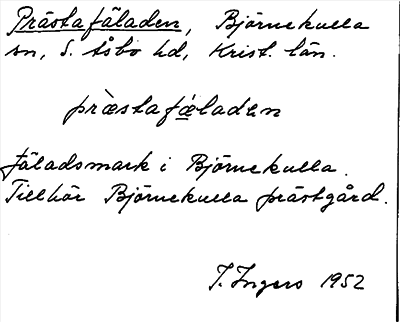 Prästafäladen, Björnekulla
sn, S. Åsbo hd, Krist. län.
præ̀stafæ̱laden
Fäladsmark i Björnekulla.
Tillhör Björnekulla prästgård.
I. Ingers 1952